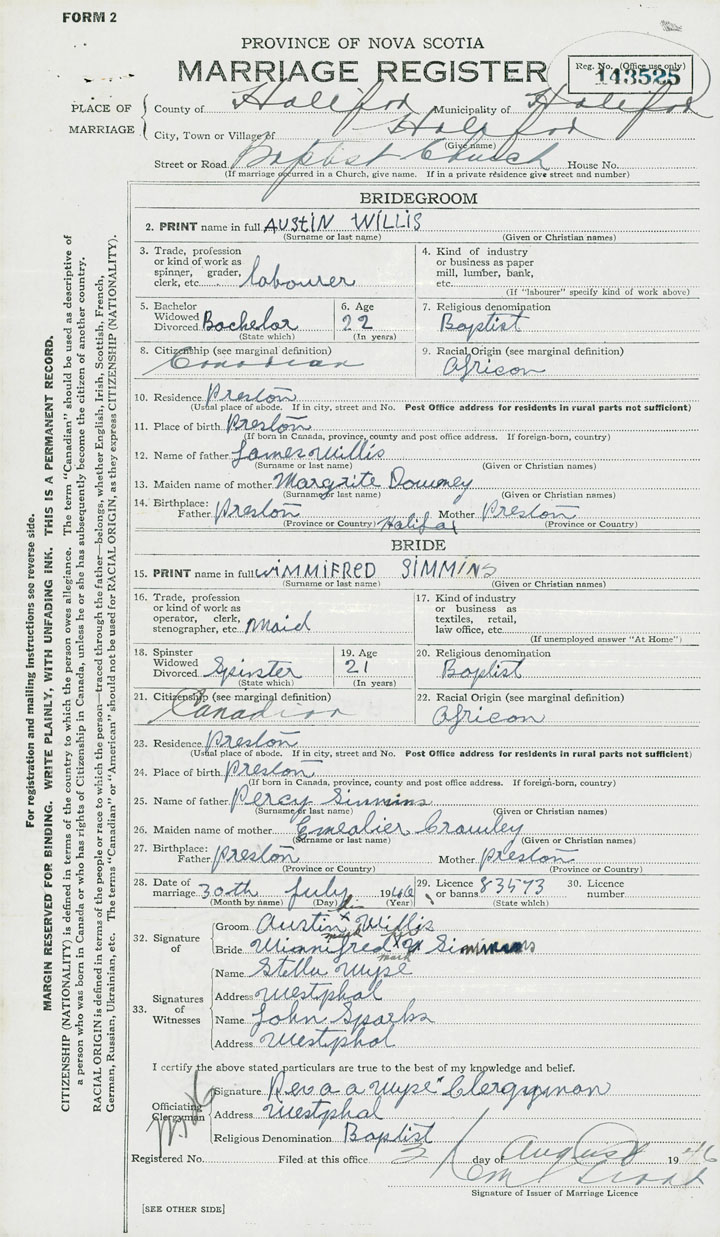 FORM 2
PROVINCE OF NOVA SCOTIA
MARRIAGE REGISTER
Reg. No. (Office use only)
143525
PLACE OF MARRIAGE
County of Halifax Municipality of Halifax
City, Town or Village of Halifax
(Give name)
Street or Road Baptist Church House No.
(If marriage occurred in a Church, give name. If in a private residence give street and number)
BRIDEGROOM
2. PRINT name in full AUSTIN WILLIS
(Surname or last name) (Given or Christian names)
3. Trade, profession or kind of work as spinner, grader, clerk, etc. labourer
4. Kind of industry or business as paper mill, lumber, bank, etc.
(If "labourer" specify kind of work above)
5. Bachelor Widowed Divorced Bachelor
(State which)
6. Age 22
(In years)
7. Religious denomination
Baptist
8. Citizenship (see marginal definition)
Canadian
9. Racial Origin (see marginal definition)
African
10. Residence Preston
(Usual place of abode. If in city, street and No. Post Office address for residents in rural parts not sufficient)
11. Place of birth Preston
(If born in Canada, province, county and post office address. If foreign-born, country)
12. Name of father James Willis
(Surname or last name) (Given or Christian names)
13. Maiden name of mother Margrite Downey
(Surname or last name) (Given or Christian names)
14. Birthplace: Father Preston Mother Preston
(Province or Country) Halifax (Province or Country)
BRIDE
15. PRINT name in full WIMMIFRED SIMMINS
(Surname or last name) (Given or Christian names)
16. Trade, profession or kind of work as operator, clerk, stenographer, etc. Maid
17. Kind of industry or business as textiles, retail, law office, etc.
(If unemployed answer "At Home")
18. Spinster Widowed Divorced Spinster
(State which)
19. Age 21
(In years)
20. Religious denomination
Baptist
21. Citizenship (see marginal definition)
Canadian
22. Racial Origin (see marginal definition)
African
23. Residence Preston
(Usual place of abode. If in city, street and No. Post Office address for residents in rural parts not sufficient)
24. Place of birth Preston
(If born in Canada, province, county and post office address. If foreign-born, country)
25. Name of father Percy Simmins
(Surname or last name) (Given or Christian names)
26. Maiden name of mother Emealier Crawley
(Surname or last name) (Given or Christian names)
27. Birthplace: Father Preston Mother Preston
(Province or Country) (Province or Country)
28. Date of marriage 30th July 1946
(Month by name) (Day) (Year)
29. Licence or banns 83573
(State which)
30. Licence number
32. Signature of
Groom Austin X Willis
Bride Winnifred X Simmins
mark
33. Signatures of Witnesses
Name Stella Wyse
Address Westphal
Name John Sparks
Address Westphal
I certify the above stated particulars are true to the best of my knowledge and belief.
Officiating Clergyman
Signature Rev a a Wyse Clergyman
Address Westphal
Religious Denomination Baptist
Registered No. Filed at this office 2 day of August 1946
Signature of Issuer of Marriage Licence
[SEE OTHER SIDE]
For registration and mailing instructions see reverse side.
MARGIN RESERVED FOR BINDING. WRITE PLAINLY, WITH UNFADING INK. THIS IS A PERMANENT RECORD.
CITIZENSHIP (NATIONALITY) is defined in terms of the country to which the person owes allegiance. The term "Canadian" should be used as descriptive of
a person who was born in Canada or who has rights of Citizenship in Canada, unless he or she has subsequently become the citizen of another country.
RACIAL ORIGIN is defined in terms of the people or race to which the person—traced through the father—belongs, whether English, Irish, Scottish, French,
German, Russian, Ukrainian, etc. The terms "Canadian" or "American" should not be used for RACIAL ORIGIN, as they express CITIZENSHIP (NATIONALITY).